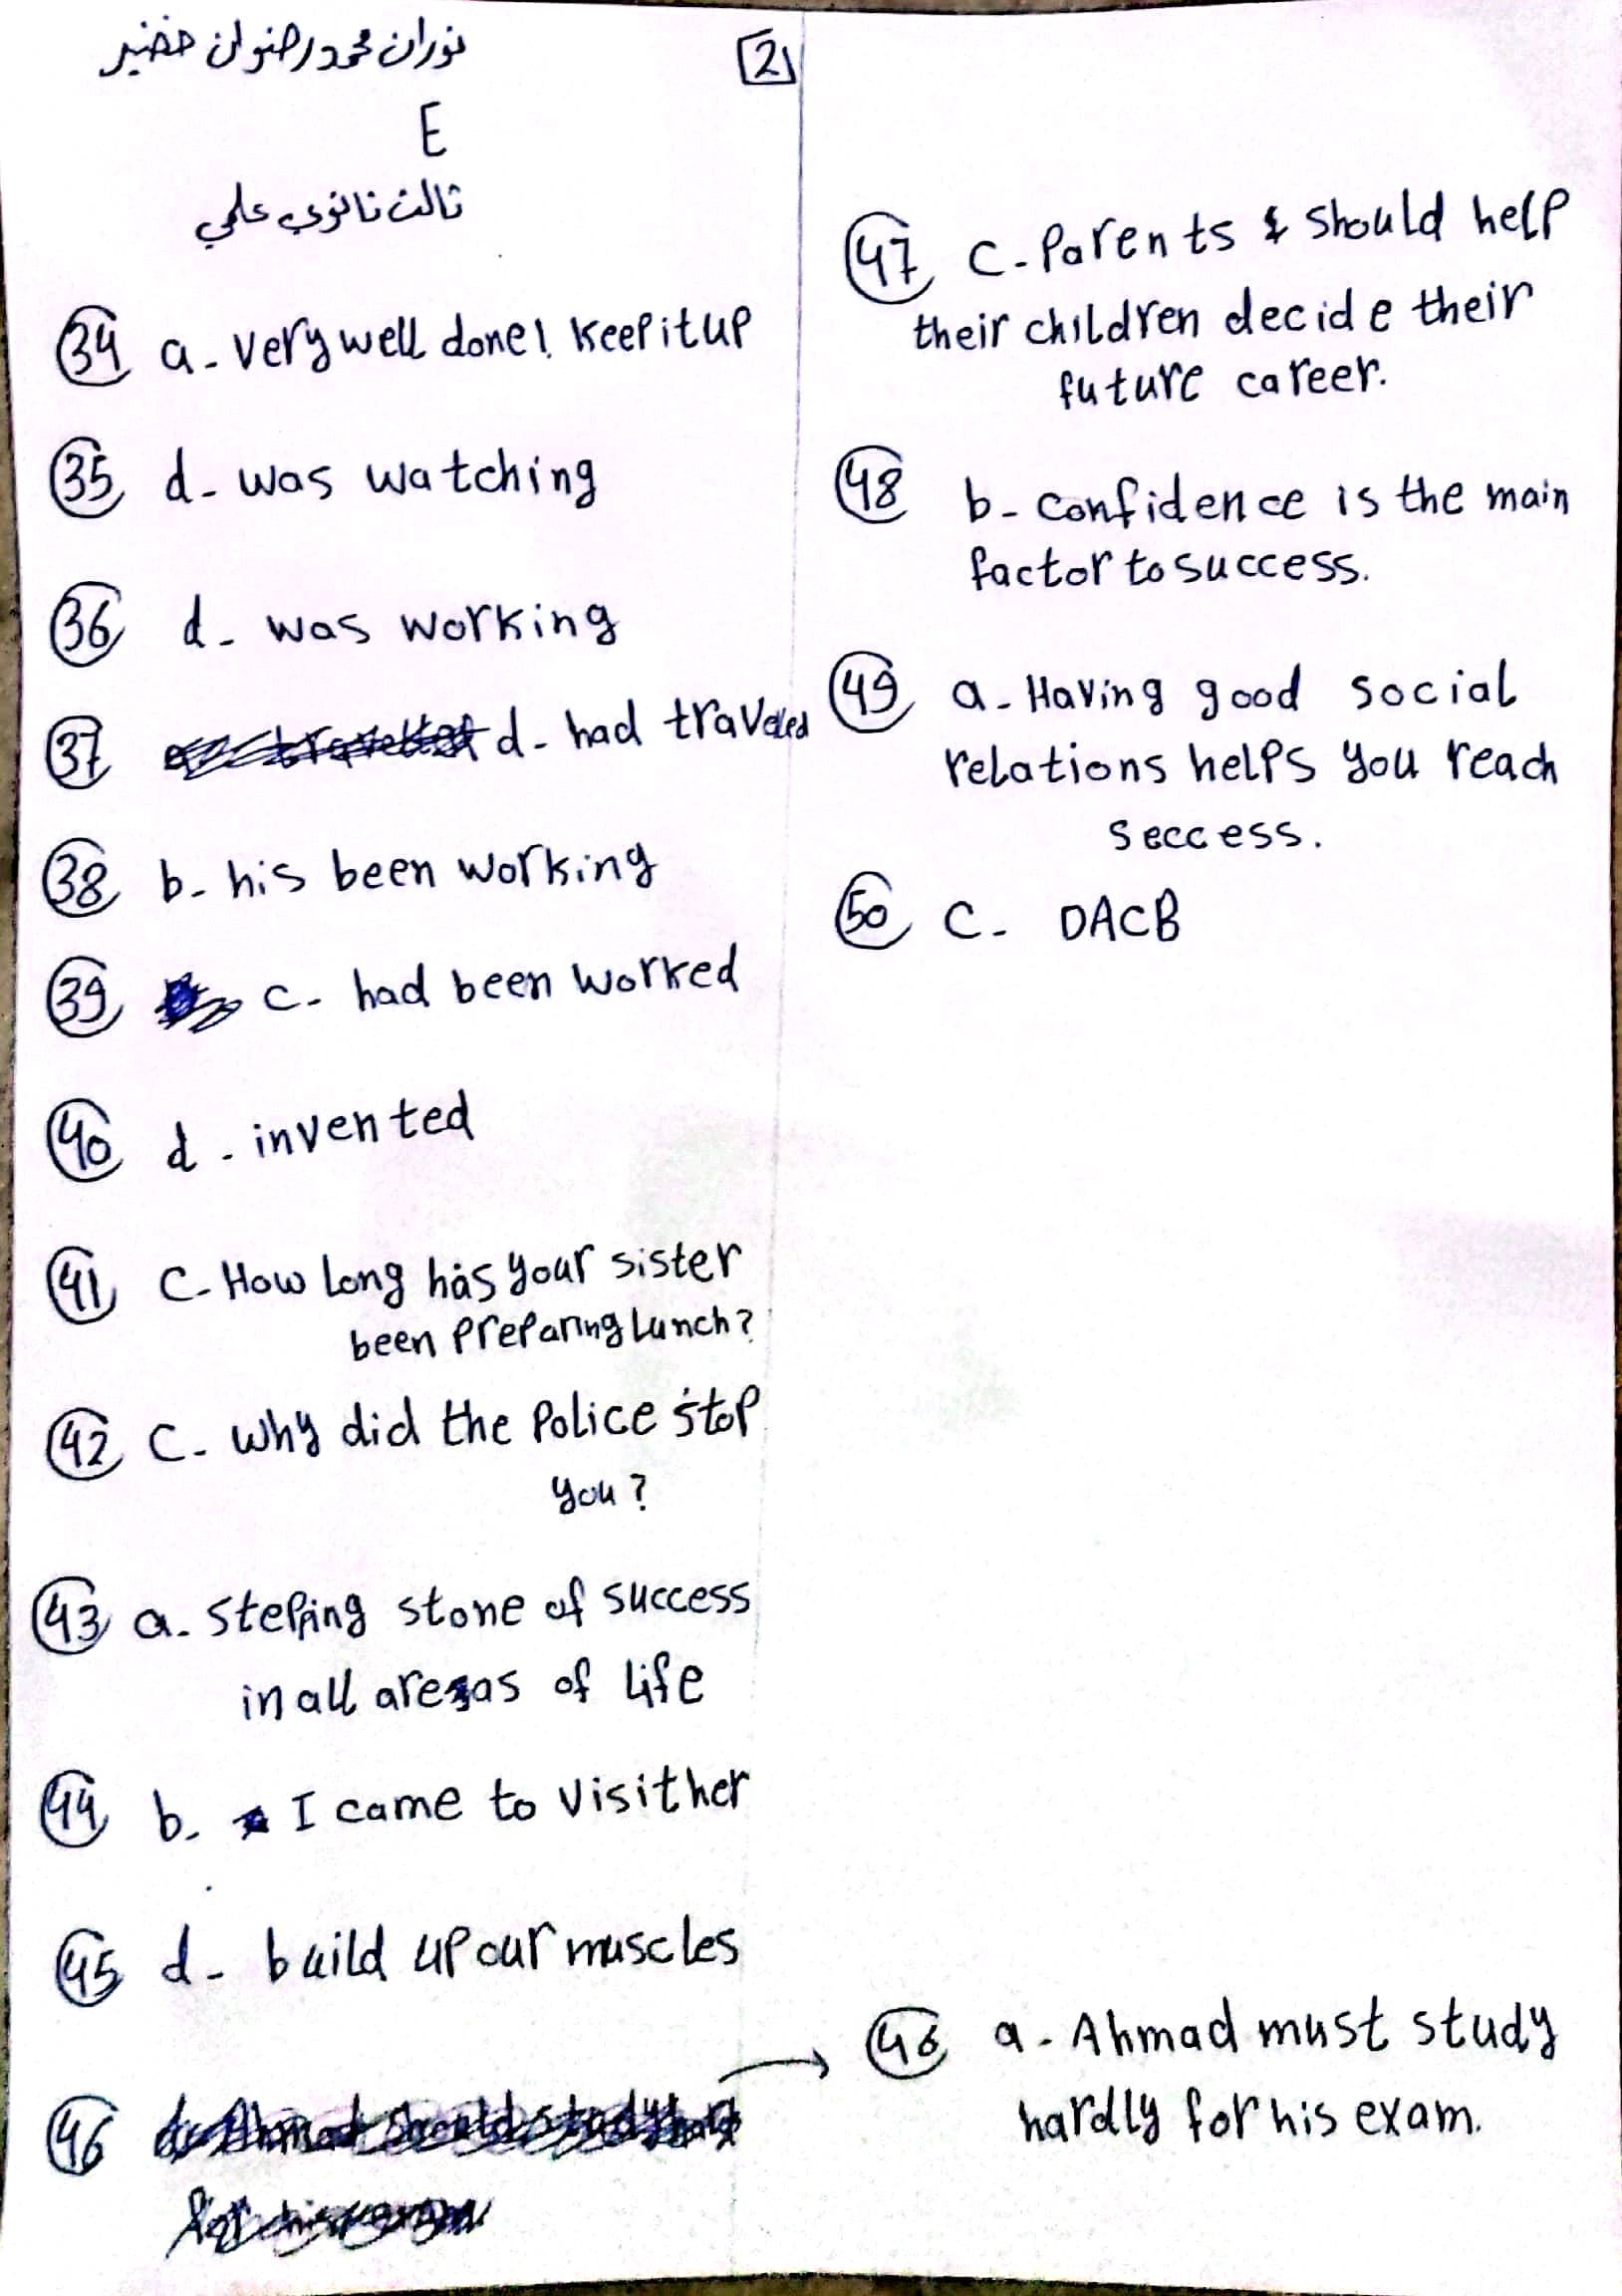 نوران محمد رضوان خضير
2
E
ثالث ثانوي علمي
34 a - very well done! Keep it up
35 d - was watching
36 d - was working
37 d - had traveled
38 b - his been working
39 c - had been worked
40 d - invented
41 C - How long has your sister
been preparing Lunch?
42 C - why did the police stop
you?
43 a - steping stone of success
in all areas of life
44 b - I came to visit her
45 d - build up our muscles
46
47 C - Parents should help
their children decide their
future career.
48 b - Confidence is the main
factor to success.
49 a - Having good social
relations helps you reach
seccess.
50 C - DACB
46 a - Ahmad must study
hardly for his exam.